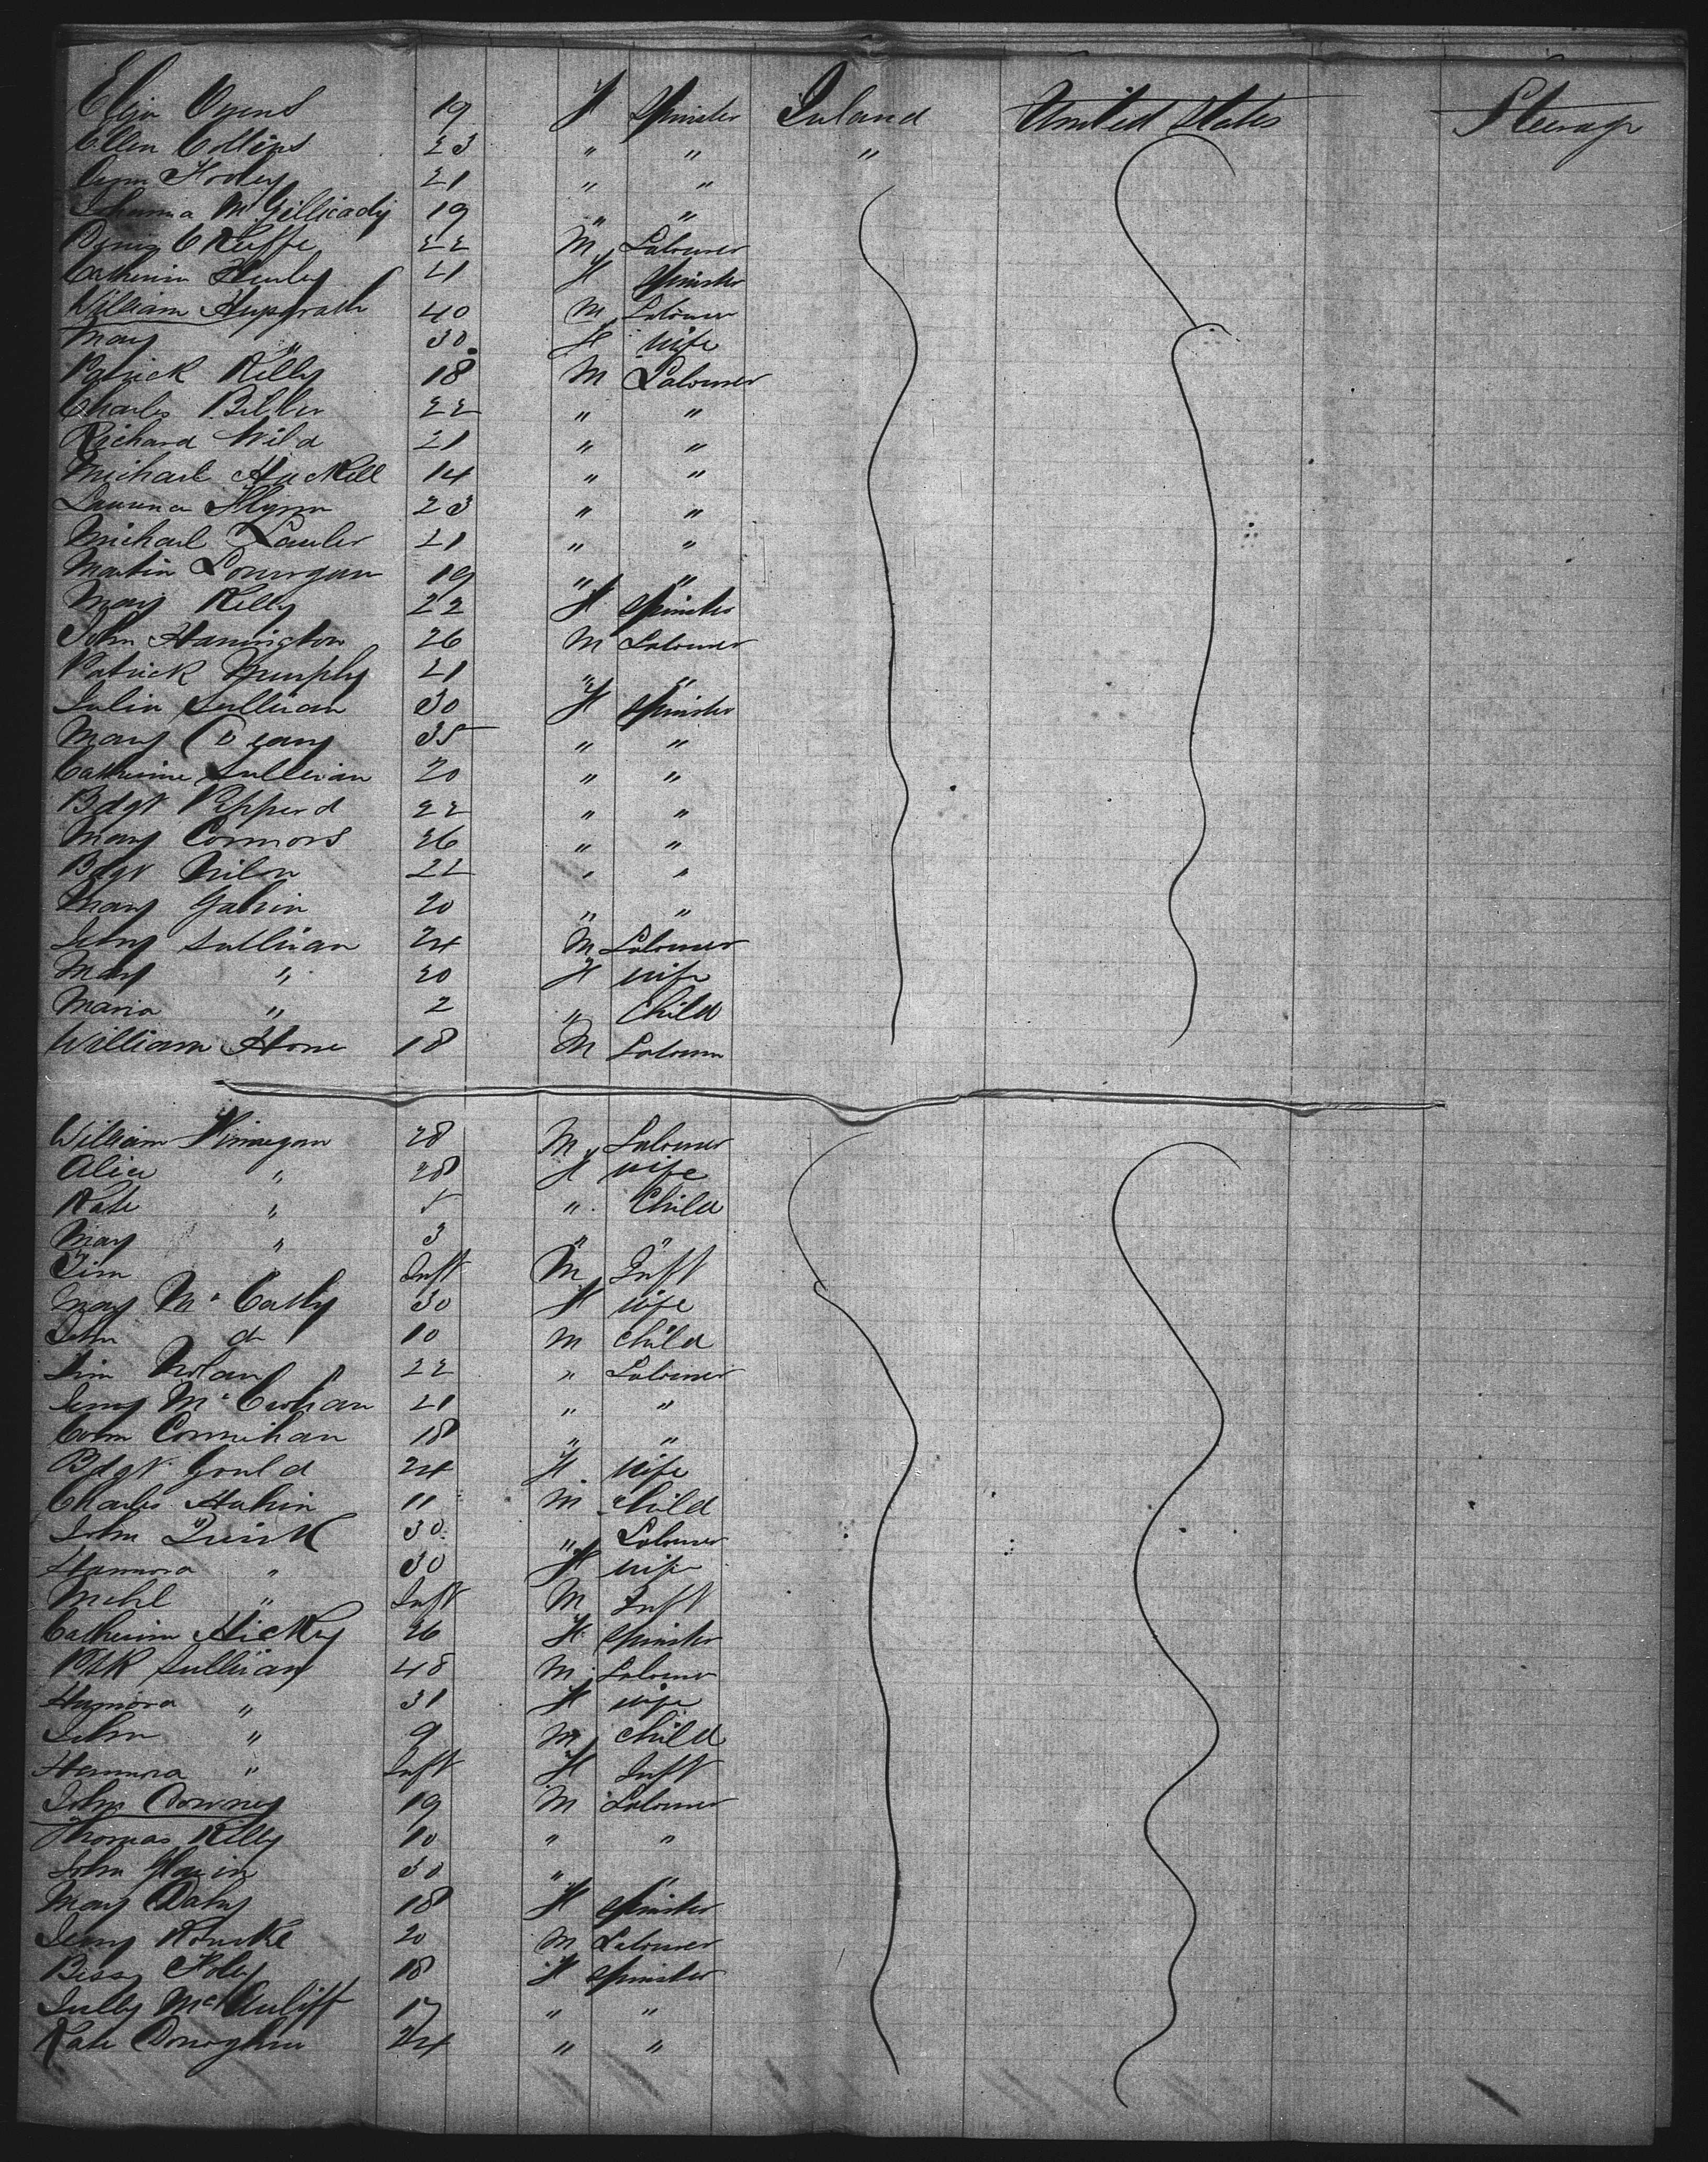 Eliza Owens 19 F Spinster Ireland United States Steerage
Ellen Collins 23 " " "
Ann Foley 21 " "
Johanna McGillicady 19 " "
Denis O Keeffe 22 M Labourer
Catherine Hurley 21 F Spinster
William 40 M Labourer
Mary " 30 F Wife
Patrick Kelly 18 M Labourer
Charles 22 " "
Richard Wild 21 " "
Michael 14 " "
Laurence Flynn 23 " "
Michael Lawler 21 " "
Martin Lonergan 19 " "
Mary Kelly 22 F Spinster
John Harrington 26 M Labourer
Patrick Murphy 21 " "
Julia Sullivan 30 F Spinster
Mary 35 " "
Catherine Sullivan 20 " "
Bdgt Pepperd 22 " "
Mary Connors 26 " "
Bdgt 22 " "
Mary Galvin 20 " "
Jerry Sullivan 24 M Labourer
Mary " 20 F Wife
Maria " 2 " Child
William Hone 18 M Labourer
William Finnegan 28 M Labourer
Alice " 28 F Wife
Kate " " Child
Mary " 3 " "
Tim Inft M Inft
Mary McCathy 30 F Wife
John do 10 M Child
Jim Nolan 22 " Labourer
Jerry McCrohan 21 " "
Connihan 18 " "
Bdgt Gould 24 F Wife
Charles 11 M Child
John Quirk 30 " Labourer
Hannora " 30 F Wife
Michl " Inft M Inft
Catherine Hickey 26 F Spinster
Ptk Sullivan 48 M Labourer
Hannora " 31 F Wife
John " 9 M Child
Hannora " Inft F Inft
John Downey 19 M Labourer
Thomas Kelly 10 " "
John 30 " "
Mary Daly 18 F Spinster
Jerry Rourke 20 M Labourer
Bessy Foley 18 F Spinster
McAuliff 17 " "
Kate Donoghue 24 " "